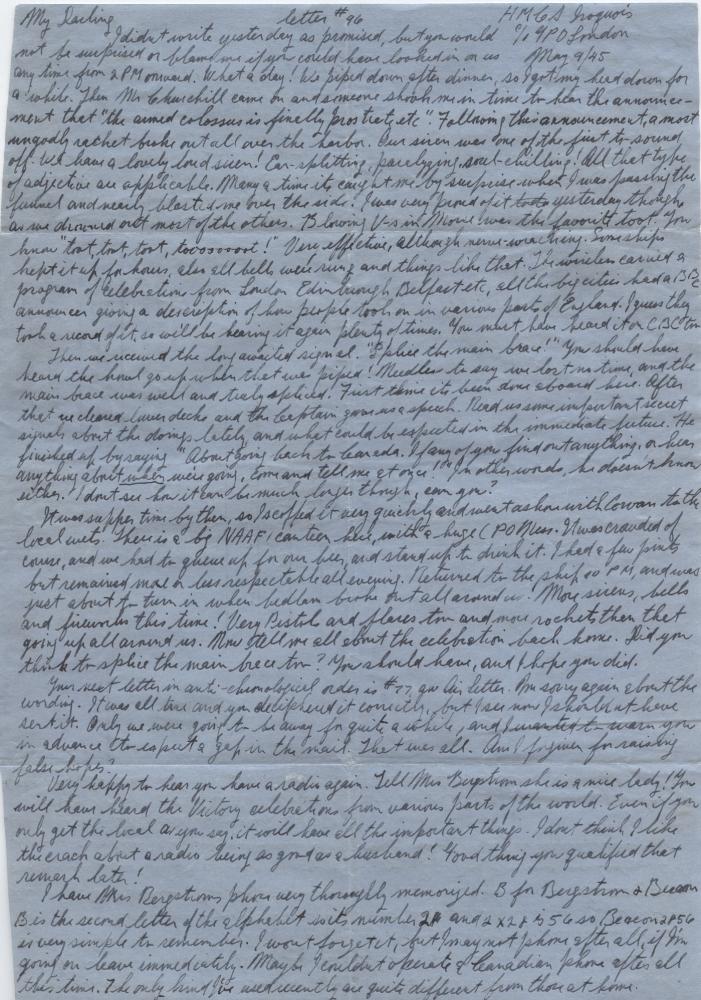 My Darling letter #96 H.M.C.S Iroquois
I didnt write yesterday as promised, but you would c/o GPO London
not be surprised or blame me if you could have looked in on us May 9/45
any time from 2 PM onward. What a day! We piped down after dinner, so I got my head down for
a while. Then Mr Churchill came on and someone shook me in time to hear the announce-
ment that "the armed colossus is finally prostrate, etc" Following this announcement, a most
ungodly racket broke out all over the harbor. Our siren was one of the first to sound
off. We have a lovely loud siren! Ear-splitting, paralyzing, soul-chilling. All that type
of adjective are applicable. Many a time its caught me by surprise when I was passing the
funnel and nearly blasted me over the side. I was very proud of it yesterday though
as we drowned out most of the others. Blowing V-s in Morse was the favorite toot. You
know "toot, toot, toot, tooooooot!" Very effective, although nerve-wracking. Some ships
kept it up for hours, also all bells were rung and things like that. The wireless carried a
program of celebrations from London Edinburough, Belfast etc, all the big cities had a BBC
announcer giving a description of how people took on in various parts of England. I guess they
took a record of it, so will be hearing it again plenty of times. You must have heard it on CBC too
Then we received the long awaited signal. "Splice the main brace!" You should have
heard the howl go up when that was piped! Needless to say we lost no time, and the
main brace was well and truly spliced. First time its been done aboard here. After
that we cleared lower decks and the Captain gave us a speech. Read us some important secret
signals about the doings lately, and what could be expected in the immediate future. He
finished up by saying "About going back to Canada. If any of you find out anything, or hear
anything about when we're going, come and tell me at once!" In other words, he doesn't know
either. I dont see how it can be much longer though, can you?
It was supper time by then, so I scoffed it very quickly and went ashore with Cowan to the
local wets. There is a big NAAFI canteen here, with a huge CPO Mess. It was crowded of
course, and we had to queue up for our beer, and stand up to drink it. I had a few pints
but remained more or less respectable all evening. Returned to the ship 10 PM, and was
just about to turn in when bedlam broke out all around us. More sirens, bells
and fireworks this time! Very Pistols and flares too and more rockets than that
going up all around us. Now tell me all about the celebration back home. Did you
think to splice the main brace too? You should have, and I hope you did.
Your next letter in anti-chronological order is #77, an air letter. Am sorry again about the
wording. It was all true and you deciphered it correctly, but I see now I should not have
sent it. Only we were going to be away for quite a while, and I wanted to warn you
in advance to expect a gap in the mail. That was all. Am I forgiven for raising
false hopes?
Very happy to hear you have a radio again. Tell Mrs Bergstrom she is a nice lady! You
will have heard the Victory celebrations from various parts of the world. Even if you
only get the local as you say, it will have all the important things. I dont think I like
the crack about a radio being as good as a husband! Good thing you qualified that
remark later!
I have Mrs Bergstroms phone very thoroughly memorized. B for Bergstrom & Beacon
B is the second letter of the alphabet so its number 2 and 2 x 2 is 56 so Beacon 2856
is very simple to remember. I wont forget it, but I may not phone after all, if I'm
going on leave immediately. Maybe I couldnt operate a Canadian phone after all
this time. The only kind I've used recently are quite different from those at home.